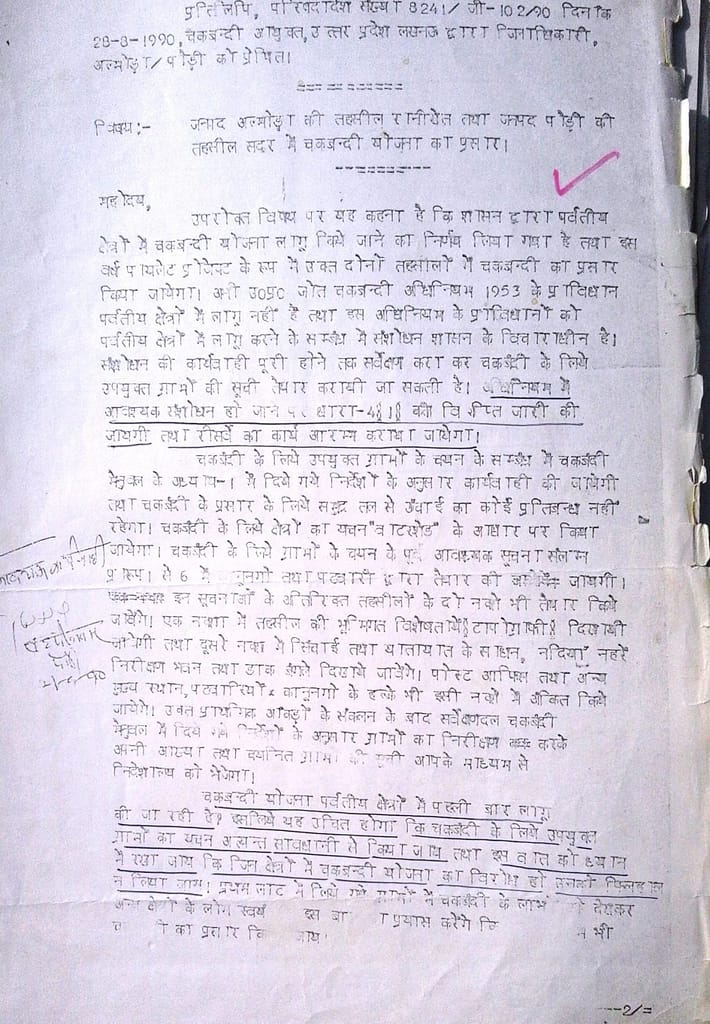 प्रतिलिपि, परिषदादेश संख्या 8241/ जी-102/90 दिनांक
28-8-1990, चकबन्दी आयुक्त, उत्तर प्रदेश लखनऊ द्वारा जिलाधिकारी,
अल्मोड़ा/ पौड़ी को प्रेषित।
विषय:- जनपद अल्मोड़ा की तहसील रानीखेत तथा जनपद पौड़ी की
तहसील सदर में चकबन्दी योजना का प्रसार।
महोदय,
उपरोक्त विषय पर यह कहना है कि शासन द्वारा पर्वतीय
क्षेत्रों में चकबन्दी योजना लागू किये जाने का निर्णय लिया गया है तथा इस
वर्ष पायलेट प्रोजेक्ट के रूप में उक्त दोनों तहसीलों में चकबन्दी का प्रसार
किया जायेगा। अभी उ0प्र0 जोत चकबन्दी अधिनियम 1953 के प्राविधान
पर्वतीय क्षेत्रों में लागू नहीं है तथा इस अधिनियम के प्राविधानों को
पर्वतीय क्षेत्रों में लागू करने के सम्बन्ध में संशोधन शासन के विचाराधीन है।
संशोधन की कार्यवाही पूरी होने तक सर्वेक्षण करा कर चकबंदी के लिये
उपयुक्त ग्रामों की सूची तैयार करायी जा सकती है। अधिनियम में
आवश्यक संशोधन हो जाने पर धारा-4§1§ की विज्ञप्ति जारी की
जायेगी तथा रीसर्वे का कार्य आरम्भ कराया जायेगा।
चकबंदी के लिये उपयुक्त ग्रामों के चयन के सम्बन्ध में चकबंदी
मैनुअल के अध्याय-1 में दिये गये निर्देशों के अनुसार कार्यवाही की जायेगी
तथा चकबन्दी के प्रसार के लिये समुद्र तल से ऊँचाई का कोई प्रतिबन्ध नहीं
रहेगा। चकबंदी के लिये क्षेत्रों का चयन "वाटरशेड" के आधार पर किया
जायेगा। चकबंदी के लिये ग्रामों के चयन के पूर्व आवश्यक सूचना संलग्न
प्रारूप 1 से 6 में कानूनगो तथा पटवारी द्वारा तैयार की जायेगी।
इन सूचनाओं के अतिरिक्त तहसीलों के दो नक्शे भी तैयार किये
जायेंगे। एक नक्शा में तहसील की भूमिगत विशेषतायें §टापोग्राफी§ दिखायी
जायेगी तथा दूसरे नक्शे में सिंचाई तथा यातायात के साधन, नदियां नहरें
निरीक्षण भवन तथा डाक बंगले दिखाये जायेंगे। पोस्ट आफिस तथा अन्य
मुख्य स्थान, पटवारियों व कानूनगो के हल्के भी इसी नक्शे में अंकित किये
जायेंगे। उक्त प्राथमिक आंकड़ों के संकलन के बाद सर्वेक्षणदल चकबंदी
मैनुअल में दिये गये निर्देशों के अनुसार ग्रामों का निरीक्षण करके
अपनी आख्या तथा चयनित ग्रामों की सूची आपके माध्यम से
निदेशालय को भेजेगा।
चकबन्दी योजना पर्वतीय क्षेत्रों में पहली बार लागू
की जा रही है। इसलिये यह उचित होगा कि चकबंदी के लिये उपयुक्त
ग्रामों का चयन अत्यन्त सावधानी से किया जाय तथा इस बात को ध्यान
में रखा जाय कि जिन क्षेत्रों में चकबन्दी योजना का विरोध हो उनको फिलहाल
न लिया जाय। प्रथम लाट में लिये गये ग्रामों में चकबंदी के लाभ देखकर
अन्य क्षेत्रों के लोग स्वयं इस प्रयास करेंगे
का प्रसार भी
--2/=